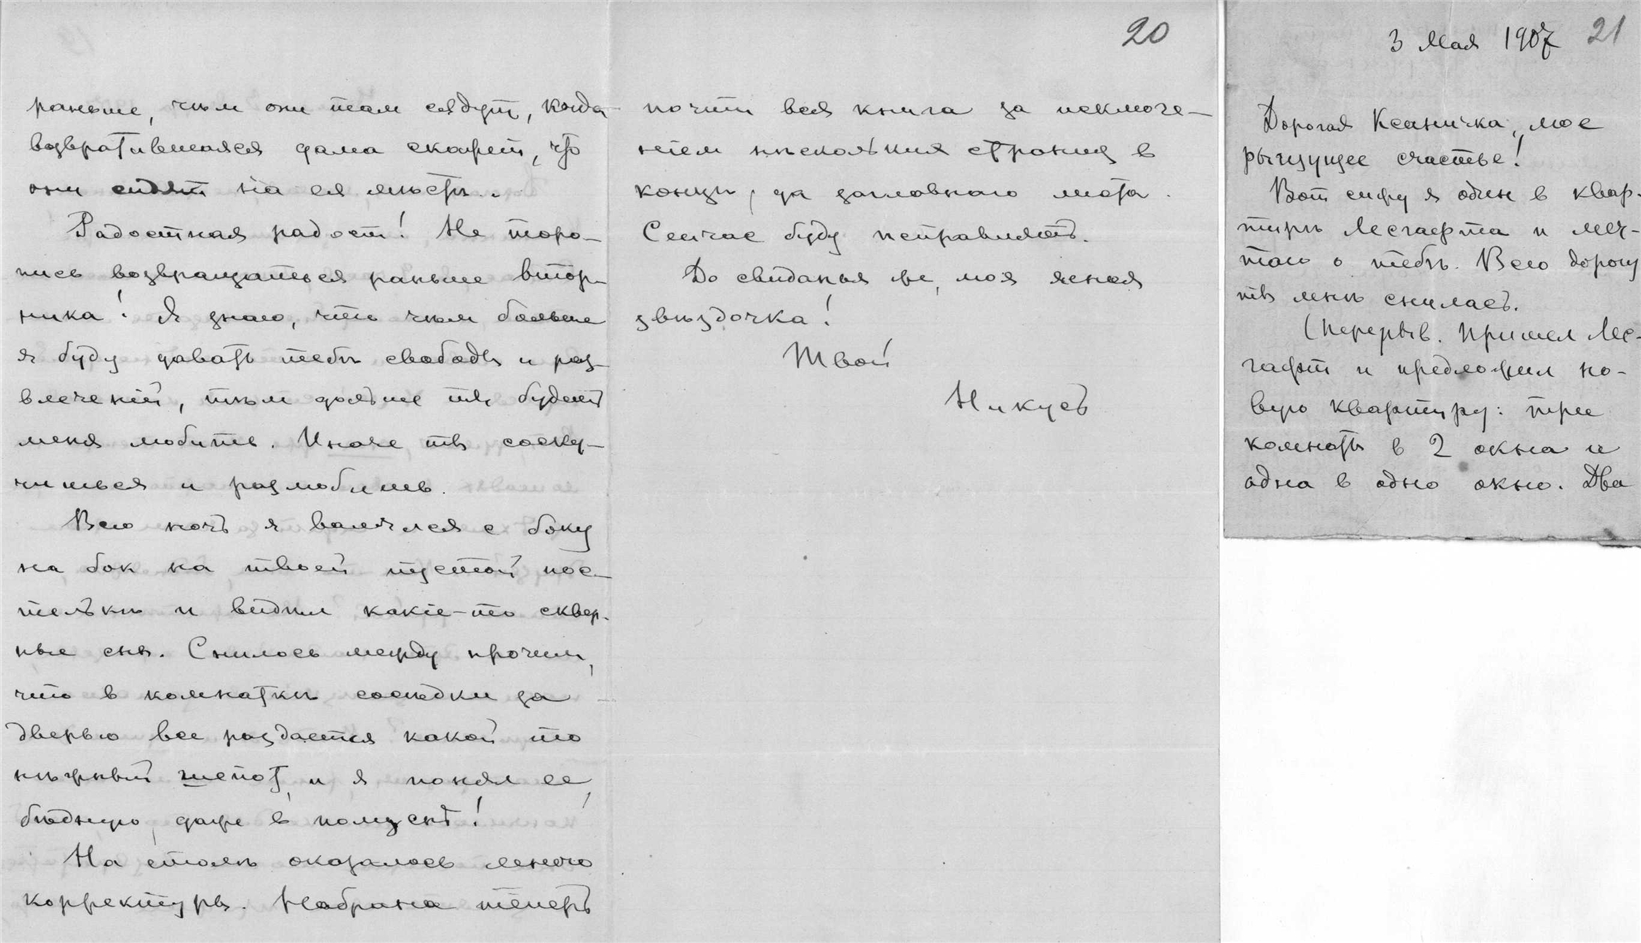 раньше, чѣм они там сядут, когда
возвратившаяся дама скажет, что
они сидят на ея мѣстѣ.
Радостная радость! Не торо-
пись возвращаться раньше втор-
ника! Я знаю, что чѣм больше
я буду давать тебѣ свободы и раз-
влеченій, тѣм дольше ты будешь
меня любить. Иначе ты соску-
чишься и разлюбишь.
Всю ночь я валялся с боку
на бок на твоей пустой пос-
телькѣ и видѣл какіе-то сквер-
ные сны. Снилось между прочим,
что в комнаткѣ сосѣдки за
дверью все раздается какой то
нѣжный шепот, и я понял ее,
бѣдную, даже в полуснѣ!
На столѣ оказалось много
корректуры. Набрана теперь
20
почти вся книга за исключе-
нием нѣскольких страниц в
концѣ, да заглавнаго листа.
Сейчас буду исправлять.
До свиданья же, моя ясная
звѣздочка!
Твой
Никусь
3 Мая 1907 21
Дорогая Ксаничка, мое
рыгзущее счастье!
Вот сижу я один в квар-
тирѣ Лесгафта и меч-
таю о тебѣ. Всю дорогу
ты мнѣ снилась.
(Перерыв. Пришел Лес-
гафт и предложил но-
вую квартиру: три
комнаты в 2 окна и
одна в одно окно. Два